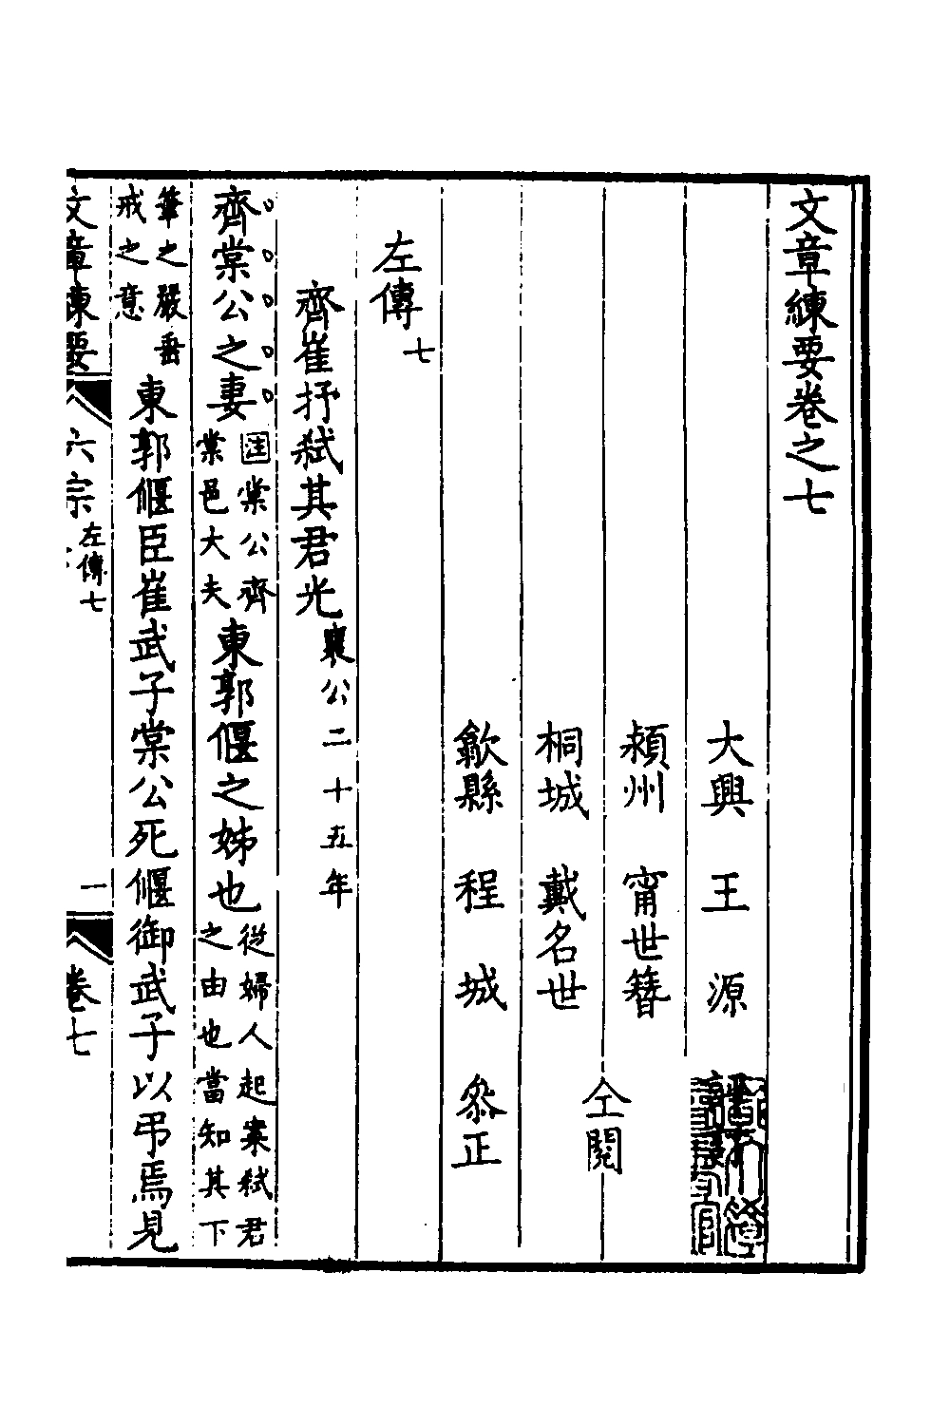 文章練要卷之七
大興 王 源
潁州 甯世簪
桐城 戴名世 仝閱
歙縣 程 城 叅正
左傳七
齊崔抒弑其君光襄公二十五年
齊棠公之妻注棠公齊棠邑大夫東郭偃之姊也從婦人起案弑君之由也當知其下
筆之嚴垂戒之意東郭偃臣崔武子棠公死偃御武子以弔焉見
文章練要 六宗 左傳七 一 卷七